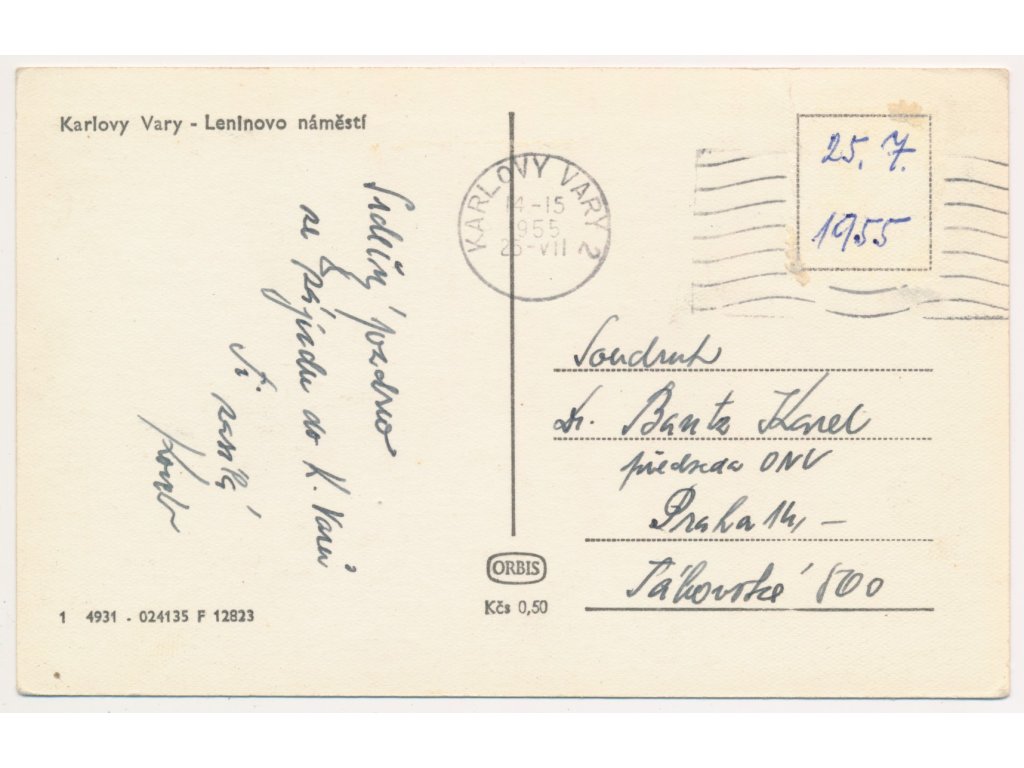 Karlovy Vary - Leninovo náměstí
Srdečný pozdrav
ze zájezdu do K. Varů
Ti zasílá
KARLOVY VARY 2
14-15
1955
25-VII
25. 7.
1955
Soudruh
Dr. Bantz Karel
předseda ONV
Praha 14, -
Táborská 500
ORBIS
Kčs 0,50
1 4931 - 024135 F 12823